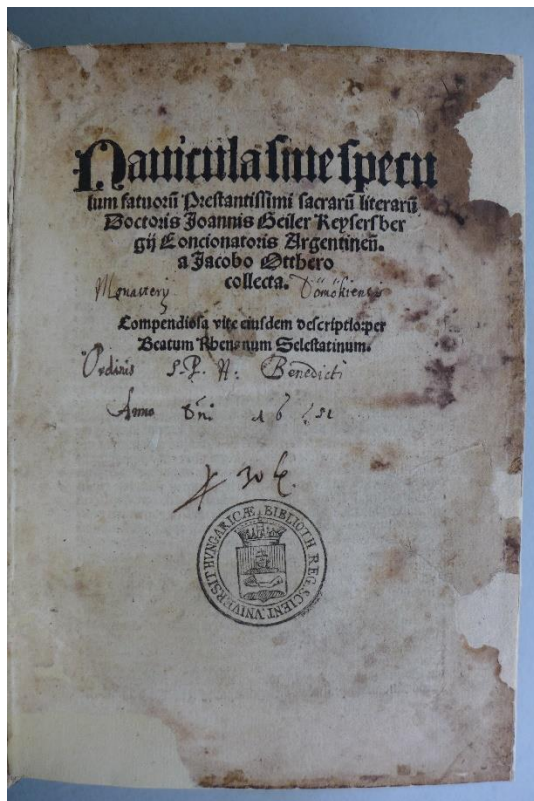 Nauicula siue specu
lum fatuorū Prestantissimi sacrarū literarū
Doctoris Joannis Geiler Keysersber
gij Concionatoris Argentineñ.
a Jacobo Otthero
collecta.
Monastery Dömökiensis
Compendiosa vite eiusdem descriptio: per
Beatum Rhenanum Selestatinum.
Ordinis S. P. N: Benedicti
Anno Dni. 16
BIBLIOTH REG. SCIENT. VNIVERSIT HVNGARICÆ